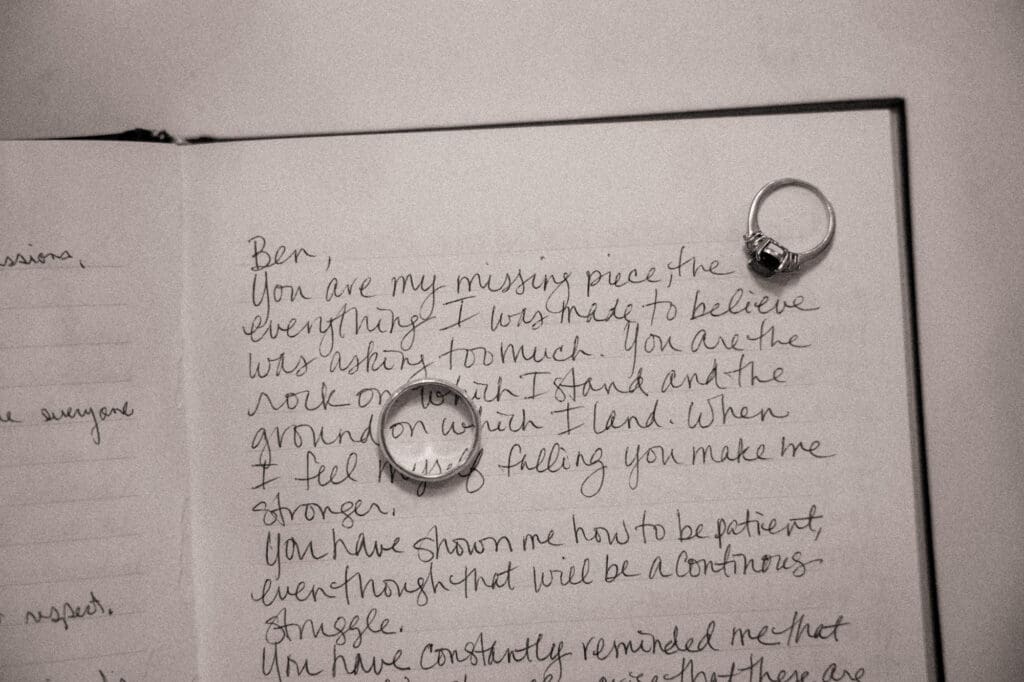 ssions,
e everyone
respect.
Ben,
You are my missing piece, the
everything I was made to believe
was asking too much. You are the
rock on which I stand and the
ground on which I land. When
I feel myself falling you make me
stronger.
You have shown me how to be patient,
even though that will be a continous
struggle.
You have constantly reminded me that
that these are